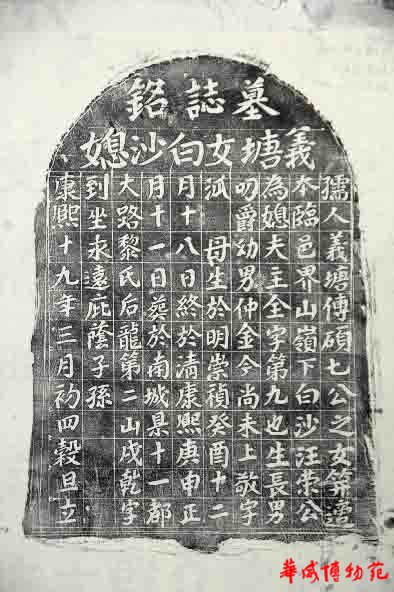 墓誌銘
義塘女白沙媳
孺人義塘傅碩七公之女適
本臨邑界山嶺下白沙汪公
為媳夫主全字第九也生長男
叨爵幼男仲金今尚未上敬字
泒 母生於明崇禎癸酉十二
月十八日終於清康熙庚申正
月十一日葵於南城県十一都
大路黎氏后龍第二山戌乾字
到坐永遠庇蔭子孫
康熙十九年三月初四穀旦立
華威博物苑